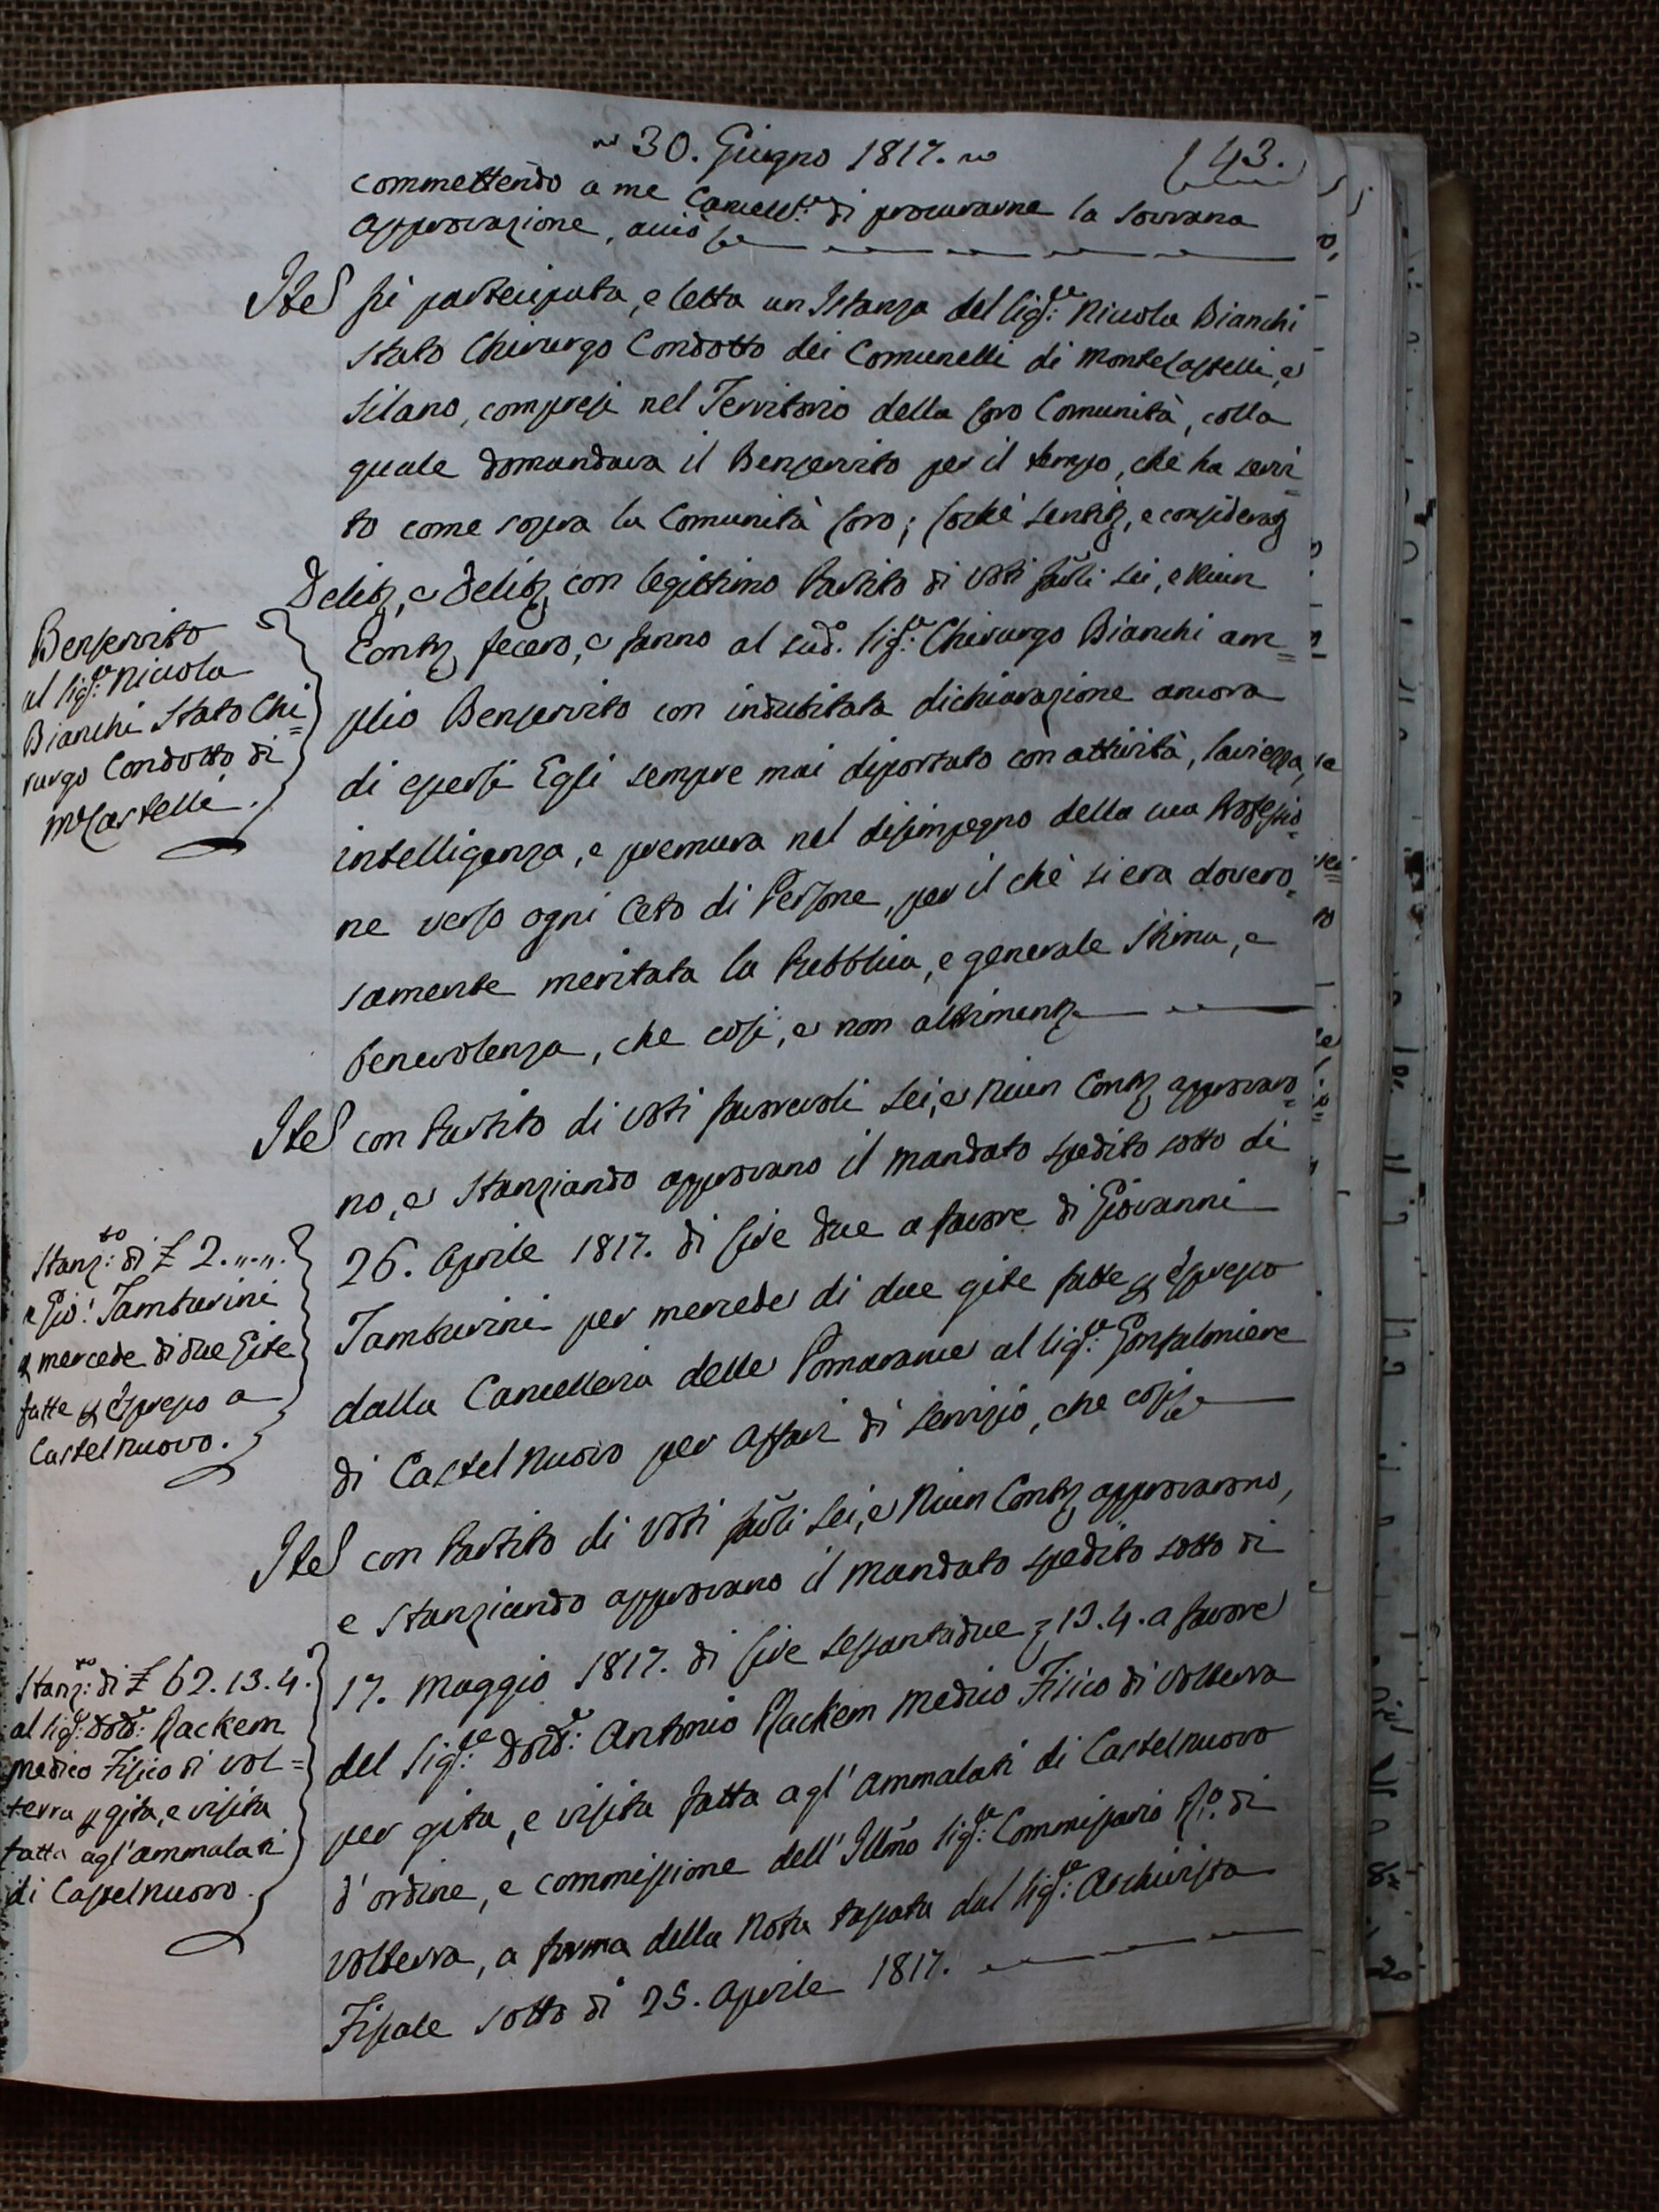 30. Giugno 1817.
143.
commettendo a me Cancell.re di procurarne la Sovrana
approvazione, acciò
Ite͠ fù partecipata, e letta un Istanza del Sig.re Niccola Bianchi
Stato Chirurgo Condotto dei Comunelli di MonteCastelli, e
Silano, compresi nel Territorio della loro Comunità, colla
quale domandava il Benservito per il tempo, che ha servi=
to come sopra la Comunità loro; loché sentito, e considerato
Delib, e Delib con legittimo Partito di Voti favli Sei, e Niun
Conto, fecero, e fanno al sud.o Sig.re Chirurgo Bianchi am=
plio Benservito con indubitata dichiarazione ancora
di essersi Egli sempre mai diportato con attività, Saviezza,
intelligenza, e premura nel disimpegno della sua Professio=
ne verso ogni Ceto di Persone, per il che si era dovero=
samente meritata la Pubblica, e generale Stima, e
benevolenza, che così, e non altrimenti
Benservito
al Sig.re Niccola
Bianchi Stato Chi=
rurgo Condotto di
MCastelli.
Ite͠ con Partito di Voti favorevoli Sei, e Niun Conto approvaro=
no, e Stanziando approvano il Mandato spedito sotto dì
26. Aprile 1817. di Lire due a favore di Giovanni
Tamburini per mercede di due gite fatte p Espresso
dalla Cancelleria delle Pomarance al Sig.re Gonfaloniere
di Castel Nuovo per affari di Servizio, che così
Stanz.to di £ 2.„.„.
a Gio: Tamburini
p mercede di due Gite
fatte p Espresso a
Castelnuovo.
Ite͠ con Partito di Voti favli Sei, e Niun Conto approvarono,
e Stanziando approvano il Mandato spedito sotto dì
17. Maggio 1817. di Lire Sessantadue, 13. 4. a favore
del Sig.re Dott.re Antonio Rackem Medico Fisico di Volterra
per gita, e visita fatta agl'ammalati di Castelnuovo
d'ordine, e commissione dell'Illmo Sig.re Commissario R.o di
Volterra, a forma della Nota tassata dal Sig.re Archivista
Fiscale sotto dì 25. Aprile 1817.
Stanz.to di £ 62. 13. 4.
al Sig.re Dott.re Rackem
Medico Fisico di Vol=
terra p gita, e visita
fatta agl'ammalati
di Castelnuovo.